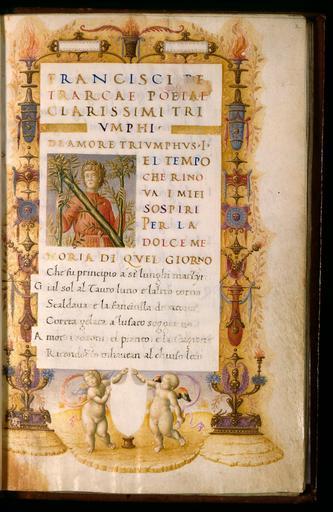 FRANCISCI PE
TRARCAE POETAE
CLARISSIMI TRI
VMPHI
DE AMORE TRIVMPHVS · I ·
EL TEMPO
CHE RINO
VA I MIEI
SOSPIRI
PER LA
DOLCE ME
MORIA DI QVEL GIORNO
Che fu principio a si lunghi martyri
Gial sol al Tauro luno e laltro corno
Scaldaua e la fanciulla di
Correa gelata al suo
Amor
Racondocto mhaueano al chiuso loco